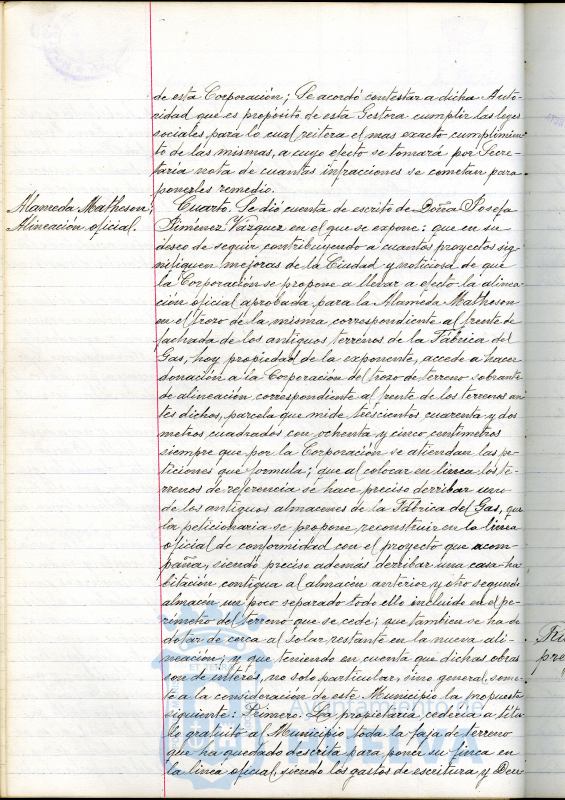 de esta Corporación; Se acordó contestar a dicha Auto-
ridad que es propósito de esta Gestora cumplir las leyes
sociales, para lo cual reitera el mas exacto cumplimien-
to de las mismas, a cuyo efecto se tomará por Secre-
taria nota de cuantas infracciones se cometan para
ponerles remedio.
Alameda Matheson;
Alineación oficial.
Cuarto. Se dió cuenta de escrito de Doña Josefa
Jiménez Vazquez en el que se expone: que en su
deseo de seguir contribuyendo a cuantos proyectos sig-
nifiquen mejoras de la Ciudad y noticiosa de que
la Corporación se propone a llevar a efecto la alinea-
ción oficial aprobada para la Alameda Matheson
en el trozo de la misma correspondiente al frente de
fachada de los antiguos terrenos de la Fábrica del
Gas, hoy propiedad de la exponente, accede a hacer
donación a la Corporación del trozo de terreno sobrante
de alineación correspondiente al frente de los terrenos an-
tes dichos, parcela que mide trescientos cuarenta y dos
metros cuadrados con ochenta y cinco centimetros
siempre que por la Corporación se atiendan las pe-
ticiones que formula; que al colocar en linea los te-
rrenos de referencia se hace preciso derribar uno
de los antiguos almacenes de la Fábrica del Gas, que
la peticionaria se propone reconstruir en la linea
oficial de conformidad con el proyecto que acom-
paña, siendo preciso además derribar una casa-ha-
bitación contigua al almacén anterior y otro segundo
almacén un poco separado todo ello incluido en el pe-
rimetro del terreno que se cede; que tambien se ha de
dotar de cerca al solar restante en la nueva ali-
neación; y que teniendo en cuenta que dichas obras
son de interés, no solo particular, sino general, some-
te a la consideración de este Municipio la propuesta
siguiente: Primero. La propietaria cederia a titu-
lo gratuito al Municipio toda la faja de terreno
que ha quedado descrita para poner su finca en
la linea oficial, siendo los gastos de escritura y Dere-
Ayuntamiento de
HUELVA